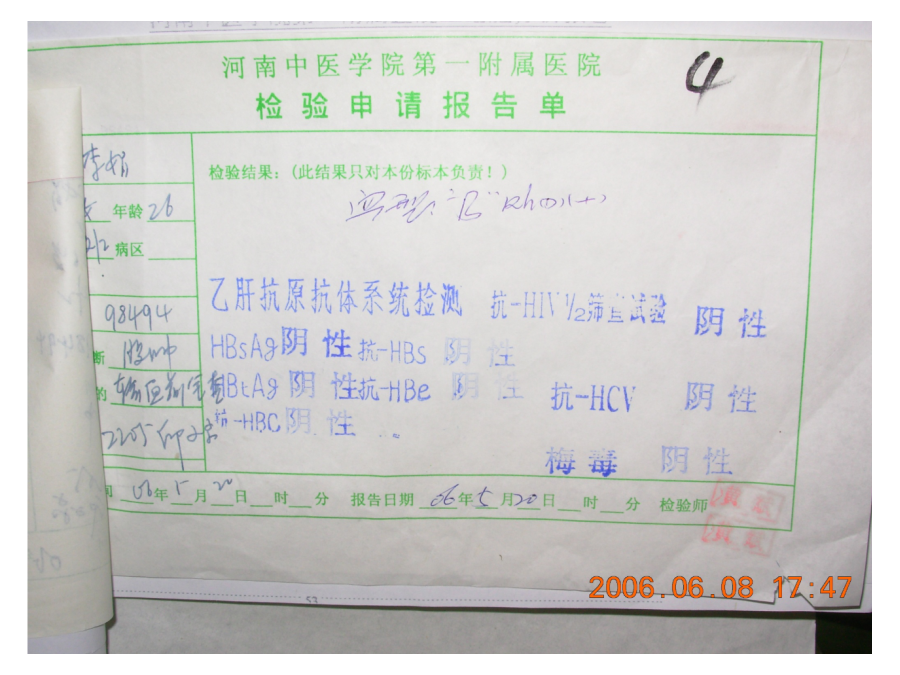 河南中医学院第一附属医院
检验申请报告单
4
李娟
检验结果:(此结果只对本份标本负责!)
年龄 26
血型:"B" Rh(D)(+)
病区
98494
乙肝抗原抗体系统检测 抗-HIV 1/2筛查试验 阴性
HBsAg阴性 抗-HBs 阴性
断
HBeAg阴性 抗-HBe 阴性 抗-HCV 阴性
的 输血前
抗-HBC阴性
梅毒 阴性
06年5月20日 时 分 报告日期 06年5月20日 时 分 检验师
2006.06.08 17:47
53